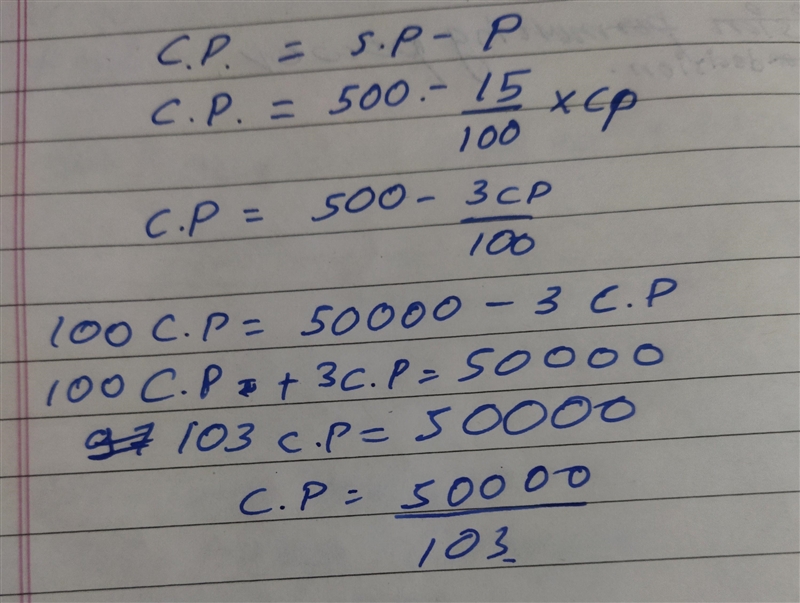 C.P. = S.P - P
C.P. = 500.- 15/100 x CP
C.P = 500 - 3CP/100
100 C.P = 50000 - 3 C.P
100 C.P. + 3C.P = 50000
103 C.P = 50000
C.P = 50000/103